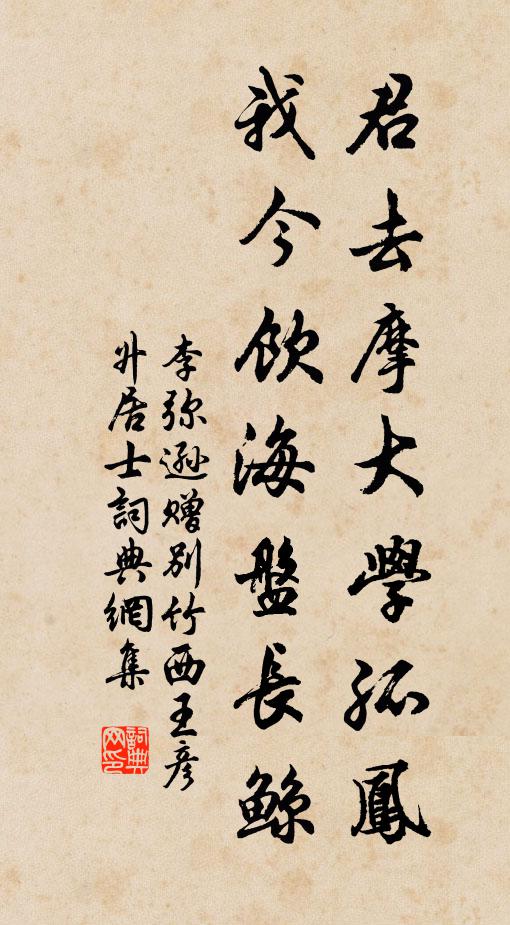 君去摩大學孤鳳
我今飲海盤長鯨
李弥遜赠别竹西王彦
升居士詞典網集
詞典网印